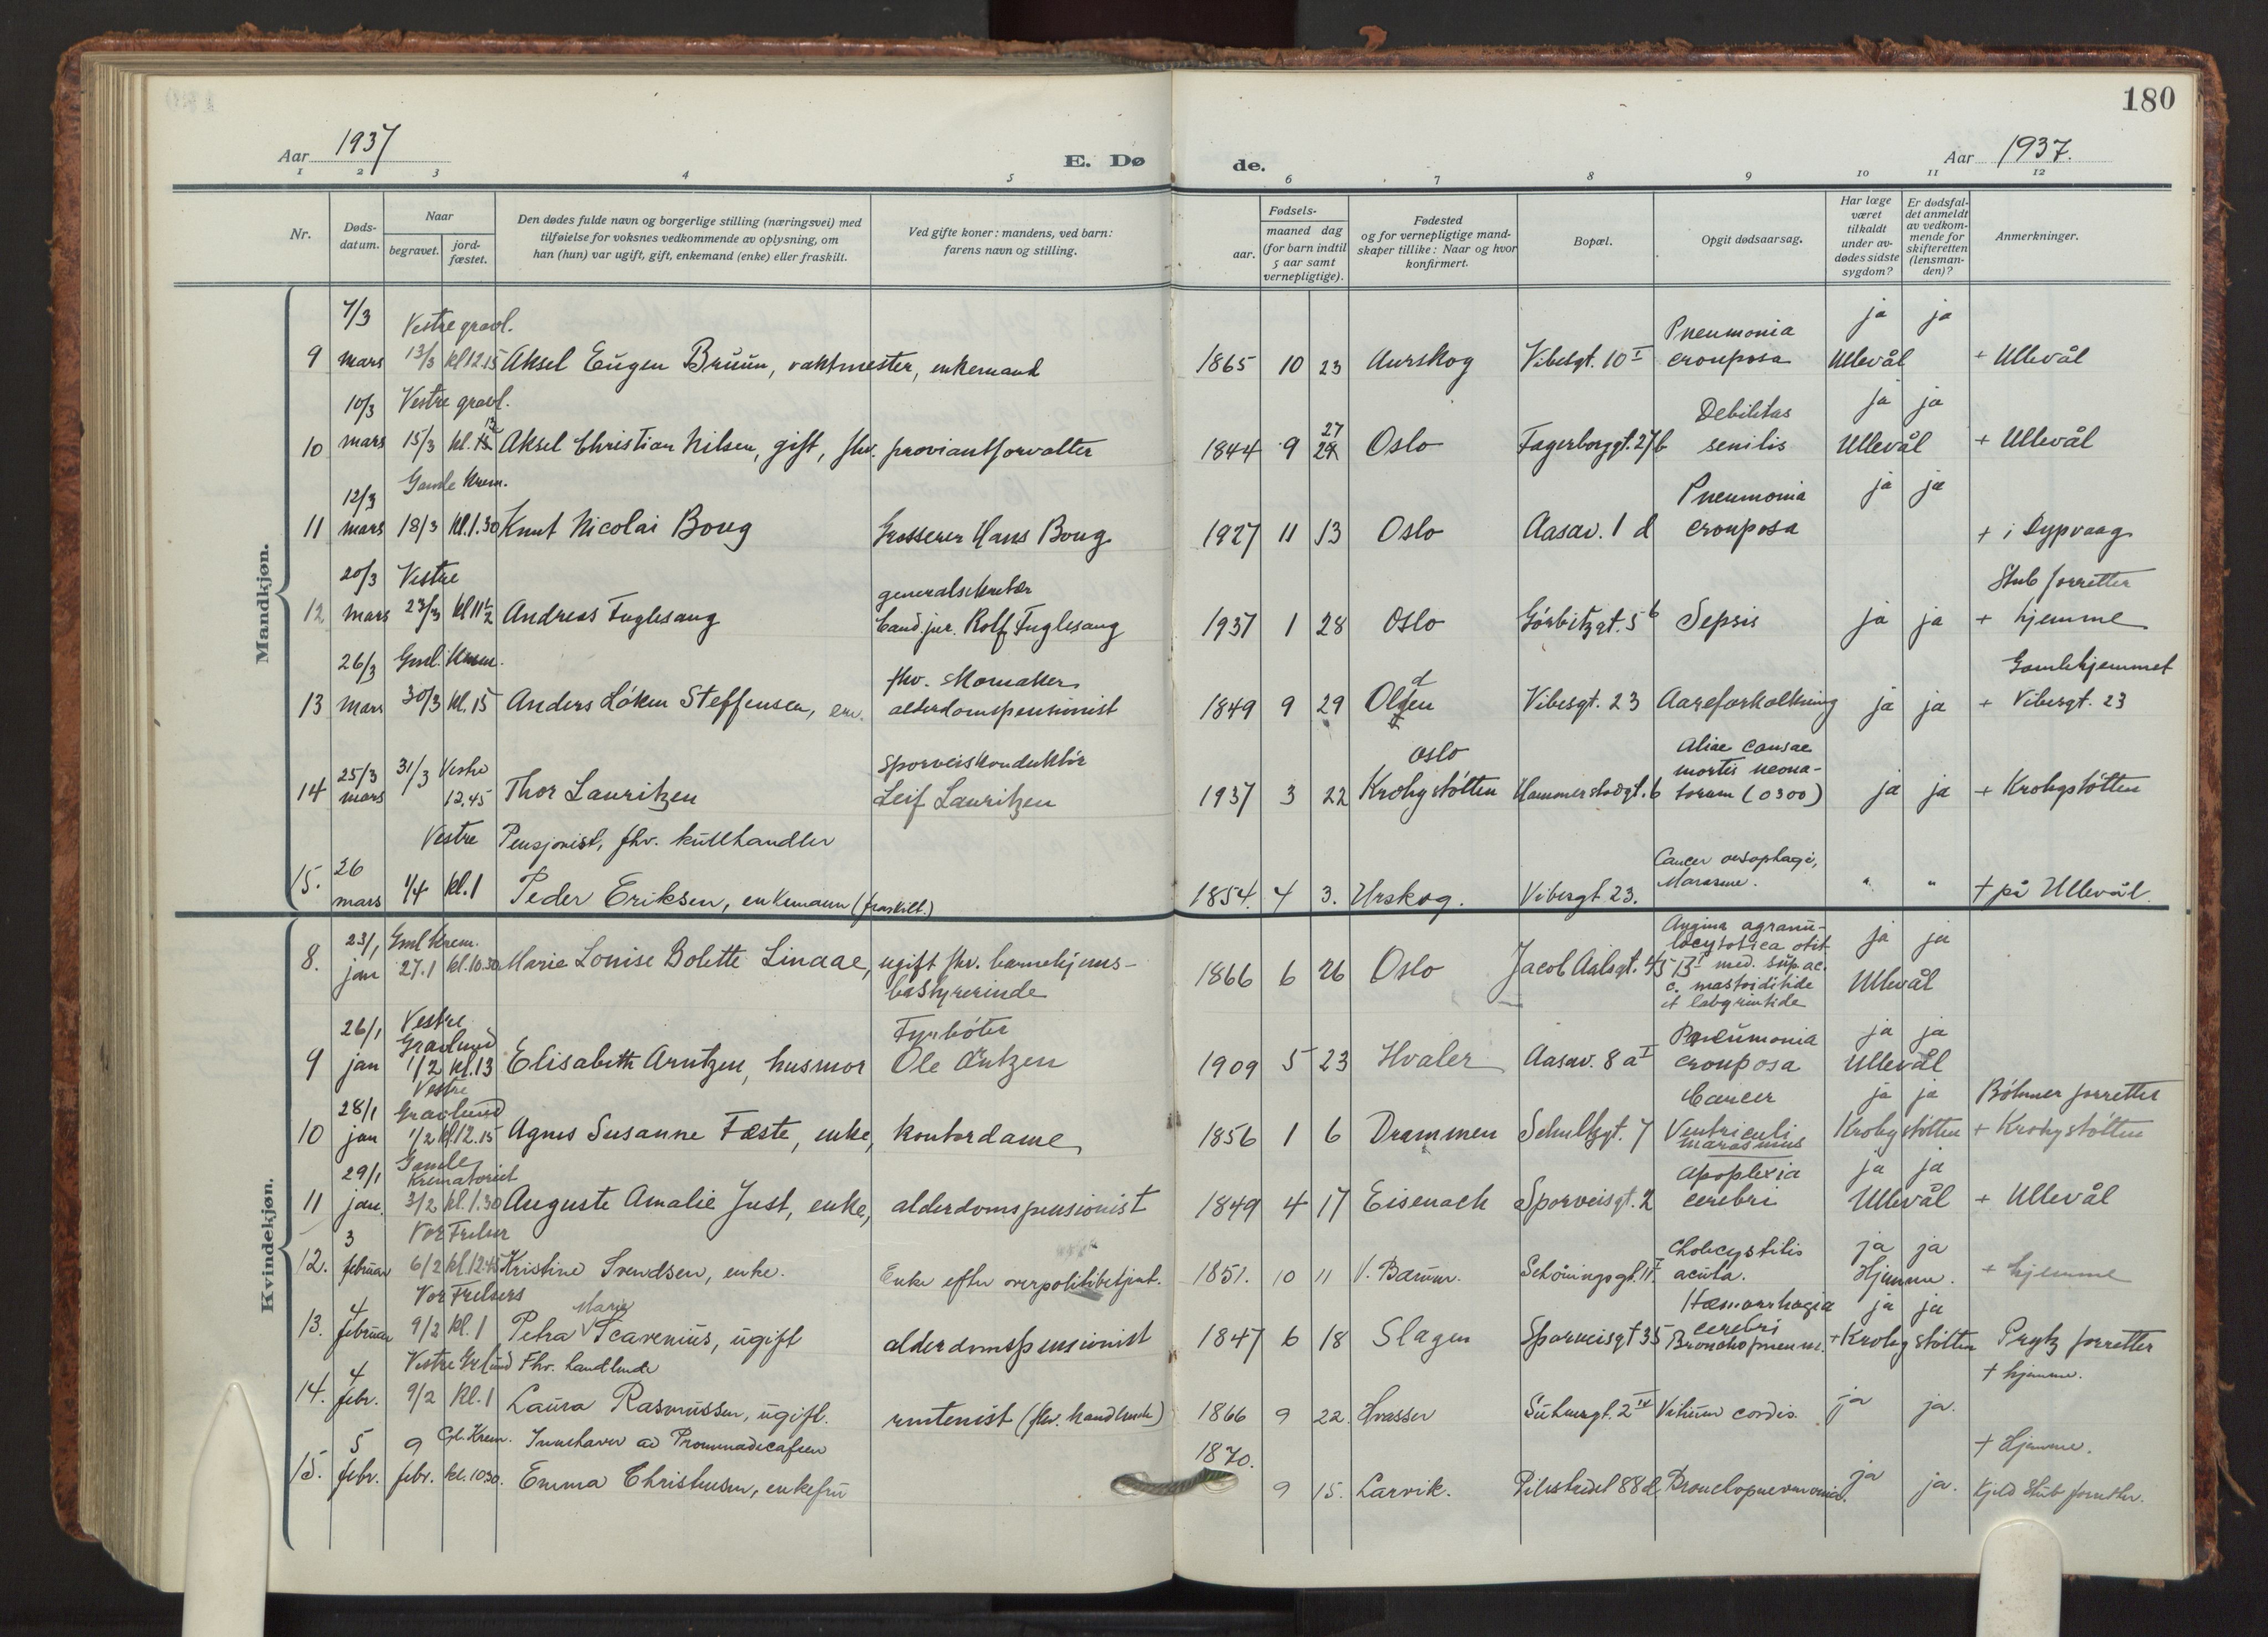 180
Aar 1937 E. Dø de. Aar 1937.
1 2 3 4 5 6 7 8 9 10 11 12
Nr.
Døds-
datum.
Naar
begravet.
jord-
fæstet.
Den dødes fulde navn og borgerlige stilling (næringsvei) med
tilføielse for voksnes vedkommende av oplysning, om
han (hun) var ugift, gift, enkemand (enke) eller fraskilt.
Ved gifte koner: mandens, ved barn:
farens navn og stilling.
Fødsels-
aar.
maaned dag
(for barn indtil
5 aar samt
vernepligtige).
Fødested
og for vernepligtige mand-
skaper tillike: Naar og hvor
konfirmert.
Bopæl.
Opgit dødsaarsag.
Har læge
været
tilkaldt
under av-
dødes sidste
sygdom?
Er dødsfal-
det anmeldt
av vedkom-
mende for
skifteretten
(lensman-
den)?
Anmerkninger.
Mandkjøn.
7/3 Vestre gravl. Pneumonia ja ja
9 mars 13/3 kl 12.15 Aksel Eugen Bruun, vaktmester, enkemand 1865 10 23 Aurskog Vibesgt. 10 I crouposa Ullevål + Ullevål
10/3 Vestre gravl. 27 Debilitas ja ja
10 mars 15/3 kl. 13 Aksel Christian Nilsen, gift, fhv. proviantforvalter 1844 9 Oslo Fagerborggt. 27 b senilis Ullevål + Ullevål
12/3 Gamle Krem. Pneumonia ja ja
11 mars 18/3 kl. 1.30 Knut Nicolai Boug Grosserer Hans Boug 1927 11 13 Oslo Aasav. 1 d crouposa + i Dypvaag
20/3 Vestre generalsekretær Stub forretter
12 mars 23/3 kl 11 1/2 Andreas Fuglesang Cand. jur. Rolf Fuglesang 1937 1 28 Oslo Görbitzgt. 5 b Sepsis ja ja + hjemme
26/3 Gml. Krem. fhv. skomaker Gamlehjemmet
13 mars 30/3 kl. 15 Anders Löken Steffensen, em. alderdomspensionist 1849 9 29 Olden Vibesgt. 23 Aareforkalkning ja ja + Vibesgt. 23
25/3 31/3 Vestre Sporveiskonduktör Oslo Aliae causae
mortis neona-
14 mars 12.45 Thor Lauritzen Leif Lauritzen 1937 3 22 Krohgstötten Hammerstadgt. 6 torum (0300) ja ja + Krohgstötten
Vestre Pensjonist, fhv. kullhandler
26 Cancer oesophagi,
15. mars 1/4 kl. 1 Peder Eriksen, enkemann (fraskilt.) 1854. 4 3. Urskog. Vibesgt 23. Marasme. " " + på Ullevål
Kvindekjøn.
23/1 Gml Krem. Angina agranu-
locytotica otit ja ja
8. jan 27.1 kl. 10.30 Marie Louise Bolette Linaae, ugift fhv. barnehjems- 1866 6 26 Oslo Jacob Aalsgt. 45 B I med. sup. ac.
bestyrerinde c. mastoiditide Ullevål
et labyrintide
26/1 Vestre Fyrböter Pneumonia ja ja
Gravlund
9 jan 1/2 kl. 13 Elisabeth Arntzen, husmor Ole Arntzen 1909 5 23 Hvaler Aasav. 8 a I crouposa Ullevål
Vestre
28/1 Gravlund Cancer ja ja Böhmer forretter
10 jan 1/2 kl. 12.15 Agnes Susanne Fæste, enke, kontordame 1856 1 6 Drammen Schultzgt. 7 Ventriculi Krohgstötten + Krohgstötten
marasmus
29/1 Gamle
Krematoriet Apoplexia ja ja
11 jan. 3/2 kl. 1.30 Auguste Amalie Just, enke, alderdomspensionist 1849 4 17 Eisenach Sporveisgt. 2 cerebri Ullevål + Ullevål
3 Vor Frelser Cholecystitis ja ja
12. februar 6/2 kl 12.45 Kristine Svendsen, enke. Enke efter overpolitibetjent. 1851. 10 11 V. Bærum. Schöningsgt. 11 I acuta. Hjemme. + hjemme
4 Vor Frelsers Marie Hæmorrhagia ja ja
13. februar 9/2 kl. 1 Petra Scavenius, ugift alderdomspensionist 1847 6 18 Slagen Sporveisgt 35 cerebri + Krohgstötten Prytz forretter
Bronchopneum.
4 Vestre Grlund Fhv. handlende + hjemme.
14. febr. 9/2 kl. 1 Laura Rasmussen, ugift. rentenist (fhv. handlende) 1866 9 22. Hvasser Suhmsgt. 2 IV Vitium cordis. ja ja.
5 9 Gl. Krem. Innehaver av Promenadecafeen 1870. + Hjemme.
15. febr. febr. kl. 1030. Emma Christensen, enkefru 9 15. Larvik. Pilestredet 88 d. Bronchopneumonia. ja ja. Kjeld Stub forretter.